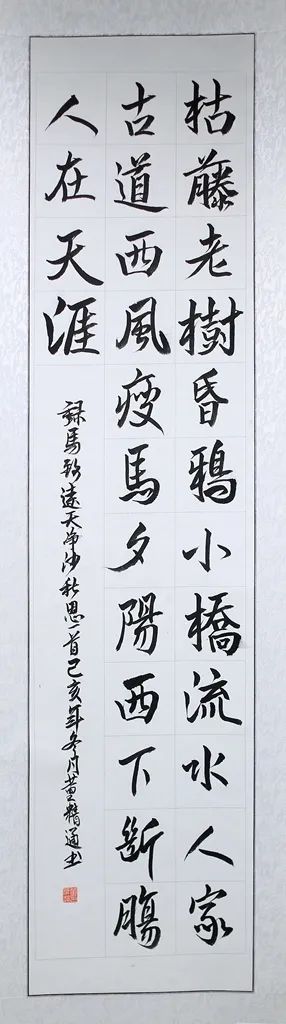 枯藤老樹昏鴉小橋流水人家
古道西風瘦馬夕陽西下斷腸
人在天涯
録馬致遠天净沙秋思一首己亥年冬月董精通书